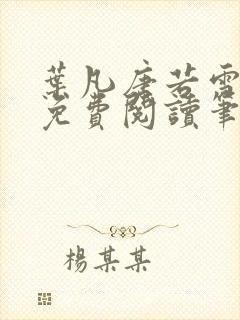 葉凡唐若雪
免費閱讀筆
楊某某